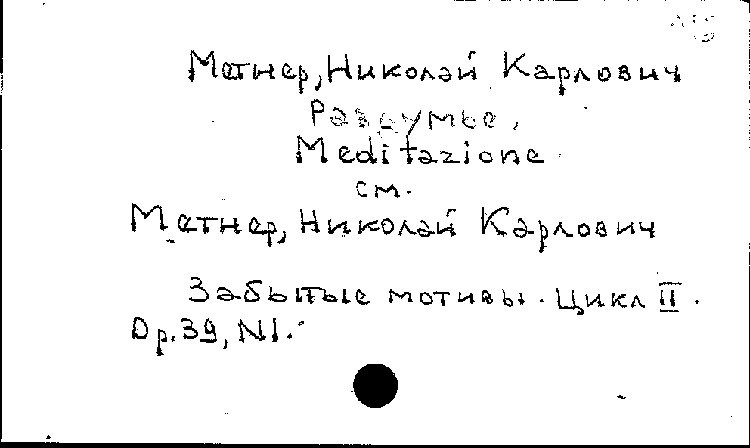 Метнер, Николай Карлович
Раздумье.
Meditazione.
см.
Метнер, Николай Карлович
Забытые мотивы. Цикл II.
Op. 39, N1.